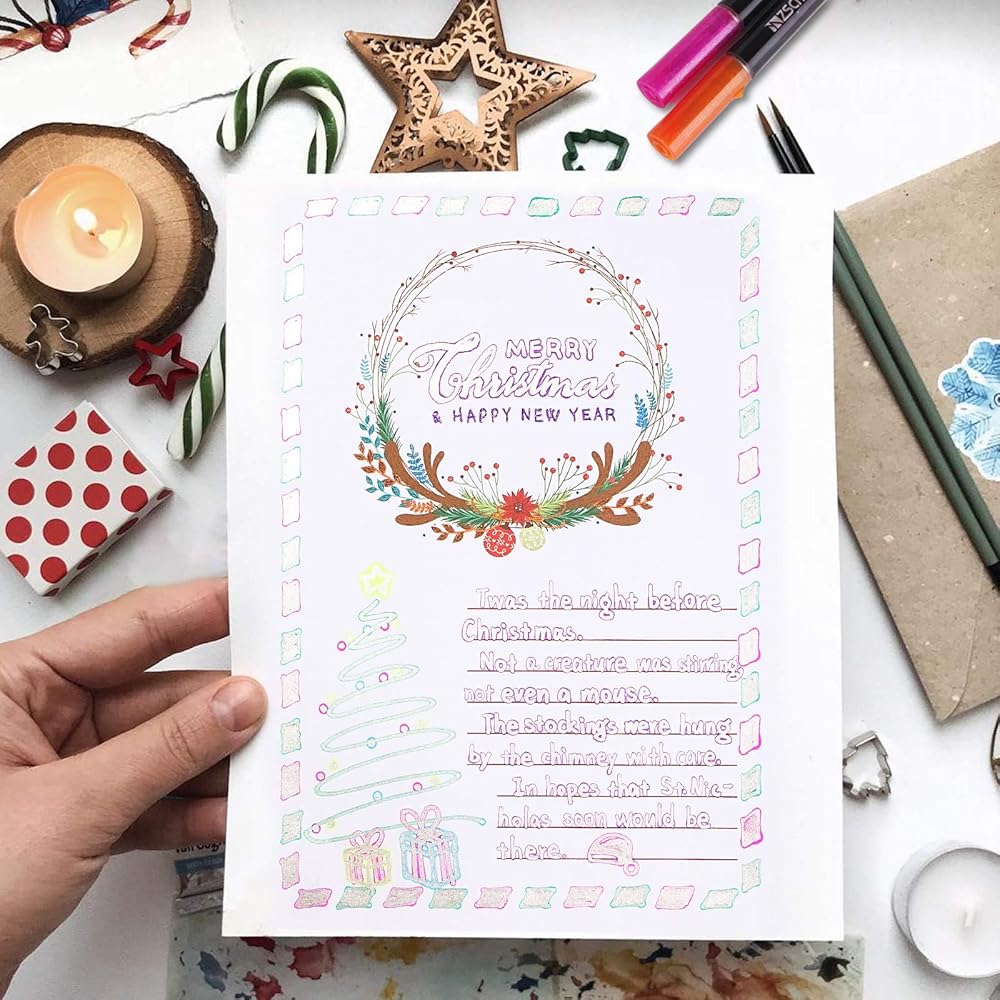 MERRY
Christmas
& HAPPY NEW YEAR
Twas the night before
Christmas.
Not a creature was stirring,
not even a mouse.
The stockings were hung
by the chimney with care.
In hopes that St. Nic-
holas soon would be
there.